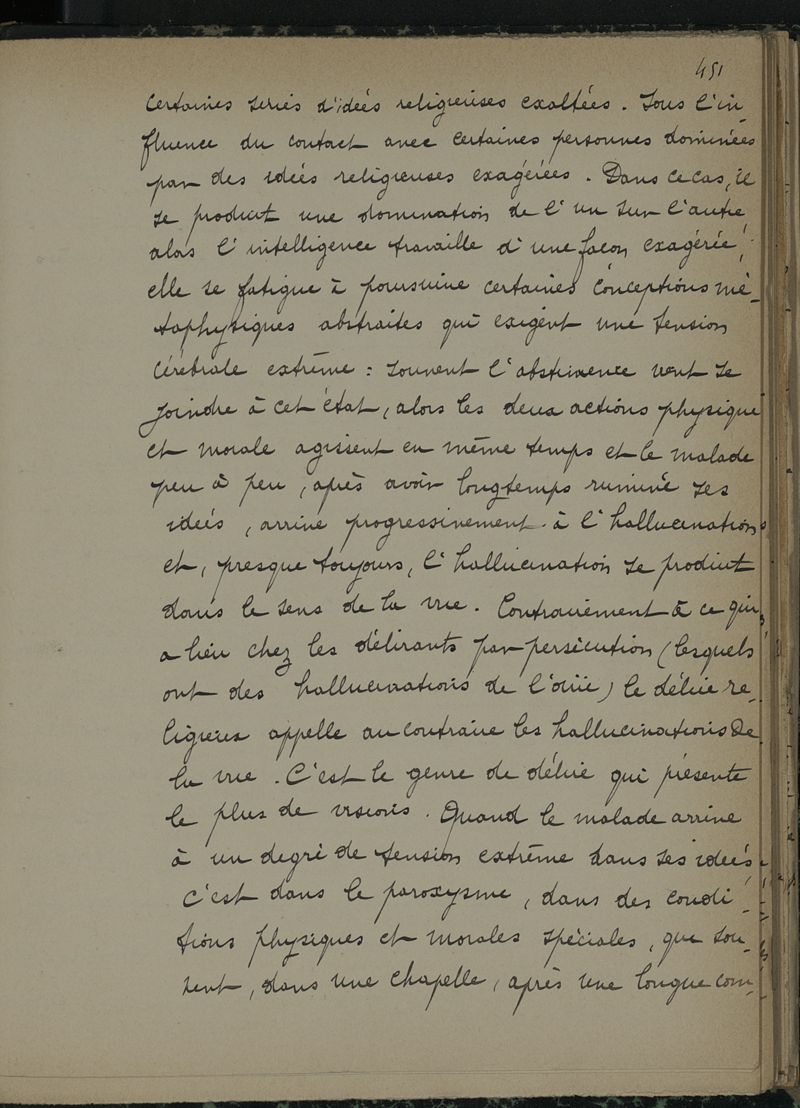 451
certaines series d'idées religieuses exaltées. Sous l'in-
fluence du contact avec certaines personnes dominées
par des idées religieuses exagérées. Dans ce cas, il
se produit une domination de l'un sur l'autre
alors l'intelligence travaille d'une façon exagérée,
elle se fatigue à poursuivre certaines conceptions mé-
taphysiques abstraites qui exigent une tension
cérébrale extrême : souvent l'abstinence vient se
joindre à cet état, alors les deux actions physique
et morale agissent en même temps et le malade
peu à peu, après avoir longtemps ruminé ses
idées, arrive progressivement à l'hallucination
et, presque toujours, l'hallucination se produit
dans le sens de la vue. Contrairement à ce qui
a lieu chez les délirants par persécution (lesquels
ont des hallucinations de l'ouïe) le délire re-
ligieux appelle au contraire les hallucinations de
la vue. C'est le genre de délire qui présente
le plus de visions. Quand le malade arrive
à un degré de tension extrême dans ses idées
c'est dans le paroxysme, dans des condi-
tions physiques et morales spéciales, que sou-
vent, dans une chapelle, après une longue com-